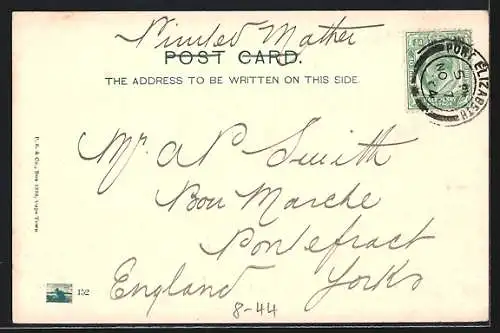 Printed Matter
POST CARD.
THE ADDRESS TO BE WRITTEN ON THIS SIDE.
PORT ELIZABETH
NO 7
Mr. A P Smith
Bon Marche
Pontefract
England Yorks
8-44
152